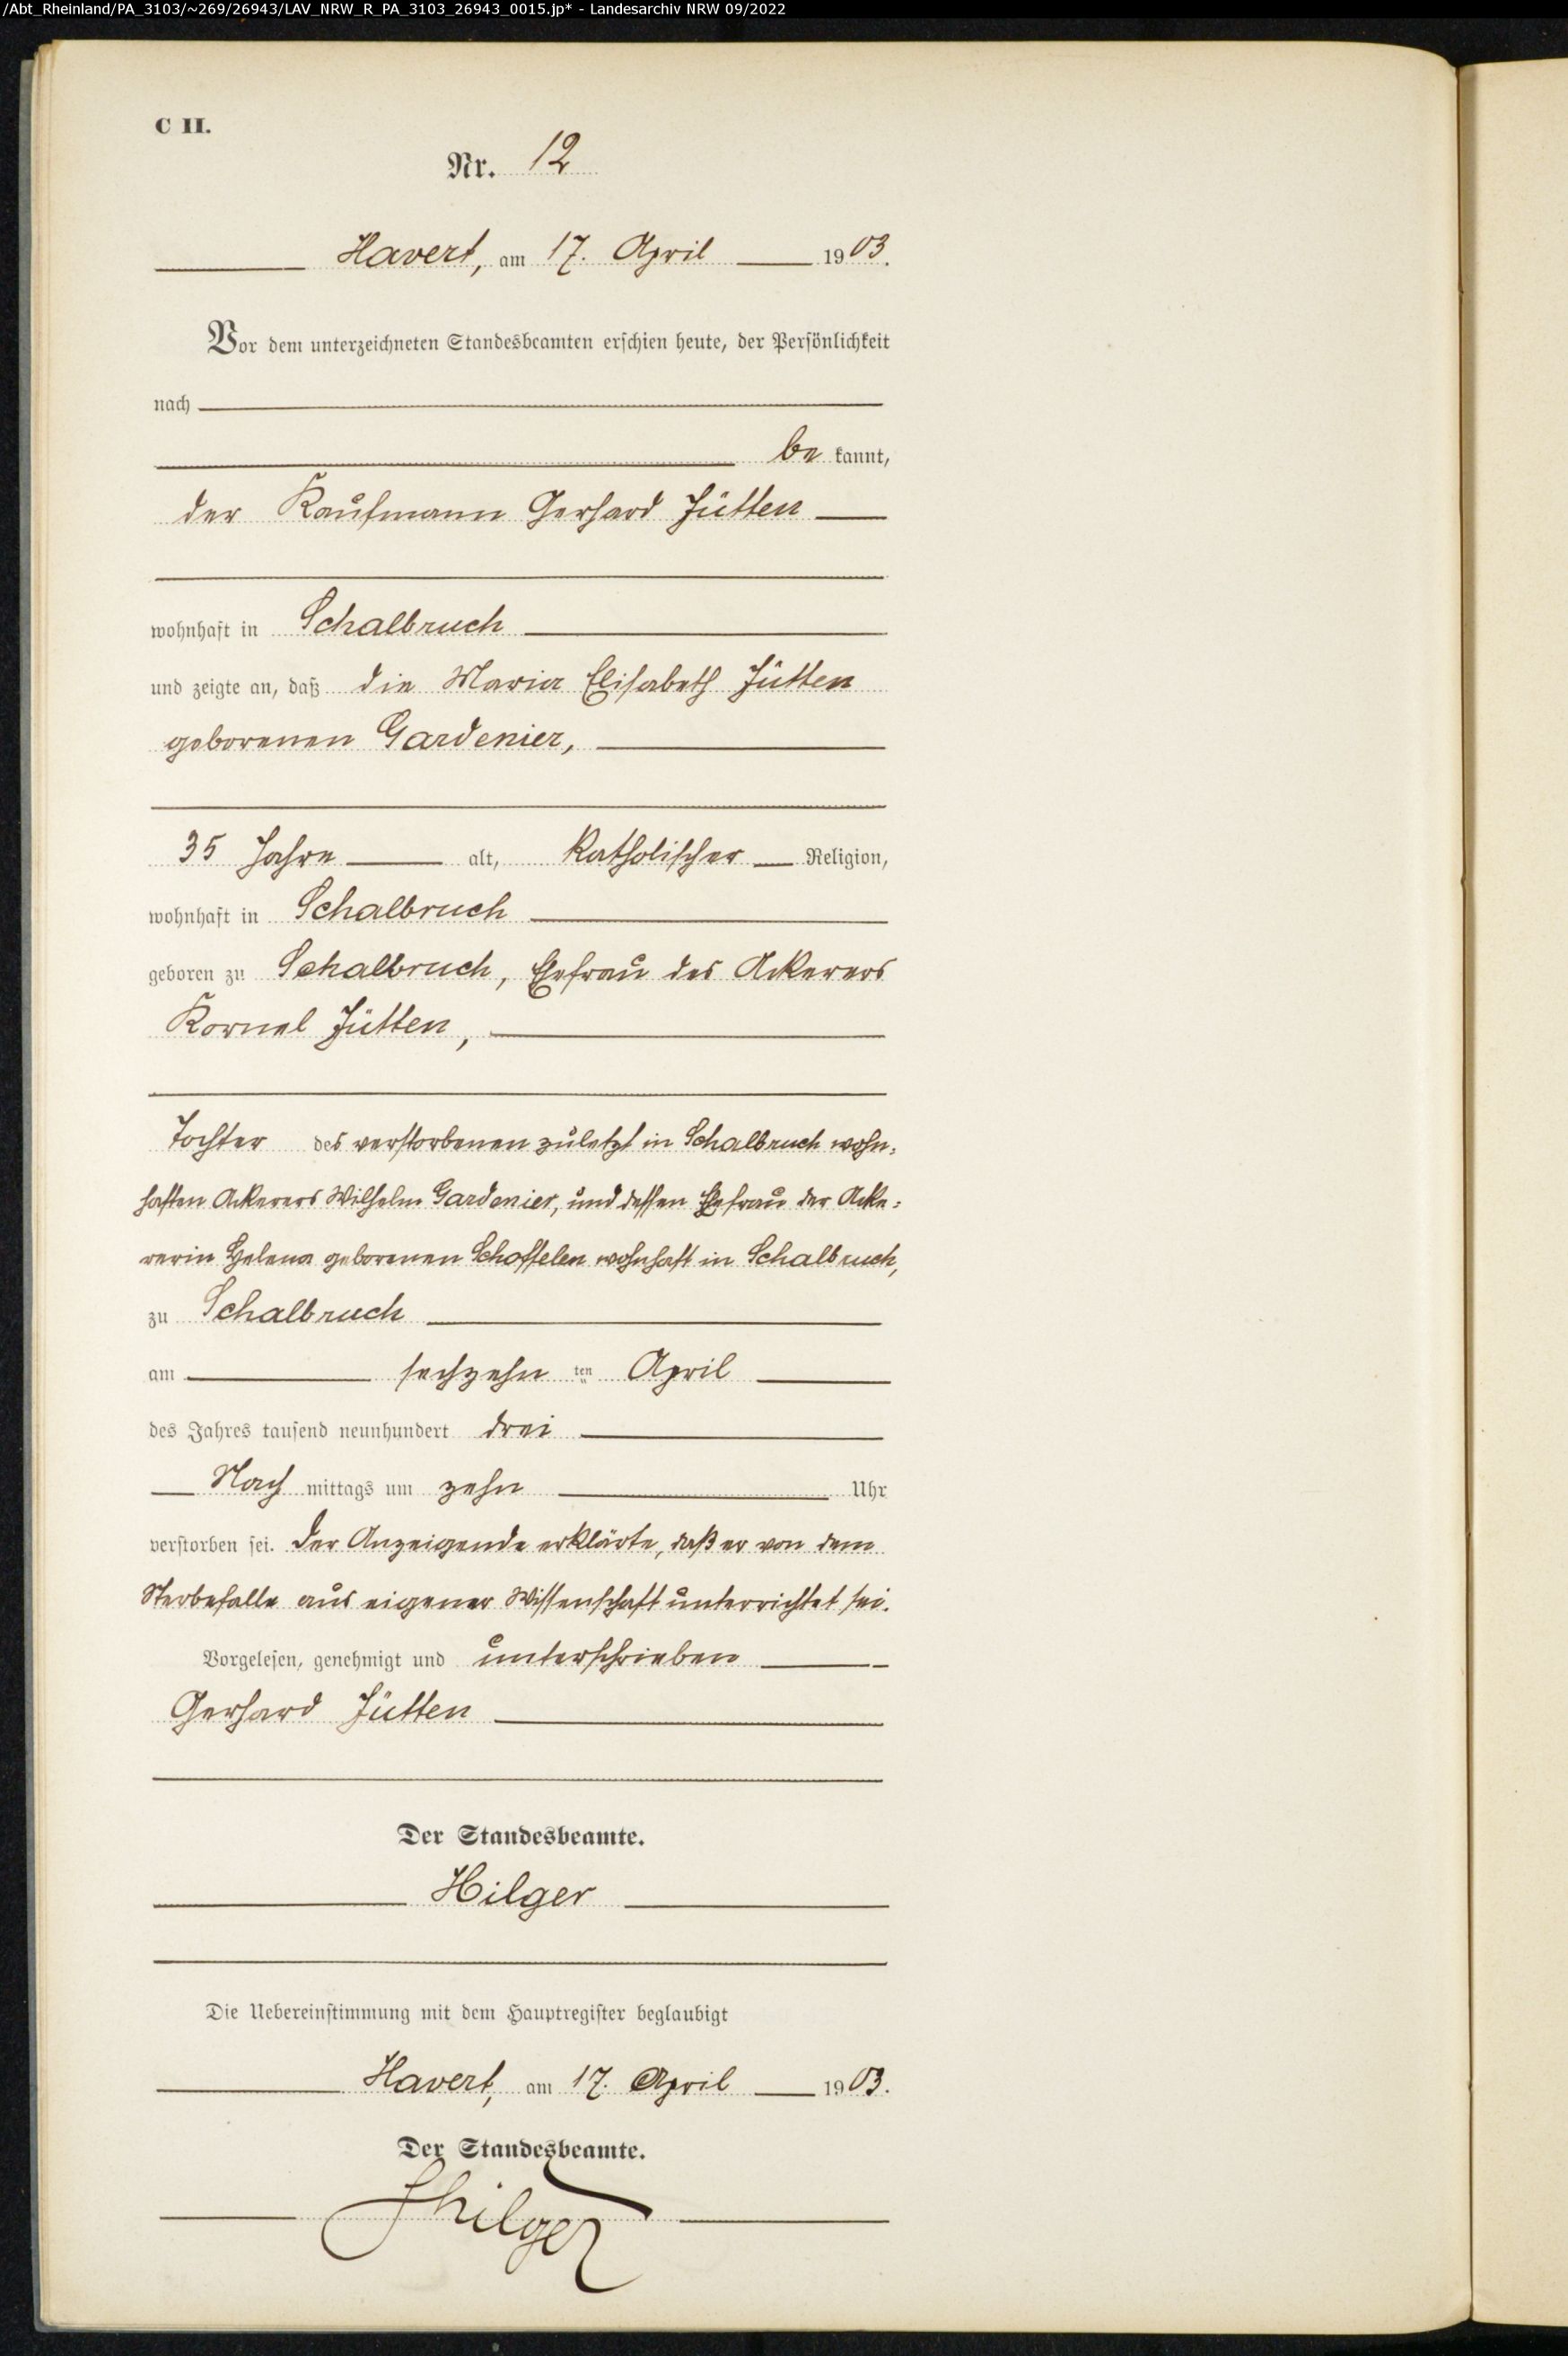 /Abt_Rheinland/PA_3103/~269/26943/LAV_NRW_R_PA_3103_26943_0015.jp* - Landesarchiv NRW 09/2022
C II.
Nr. 12
Havert, am 17. April 1903.
Vor dem unterzeichneten Standesbeamten erschien heute, der Persönlichkeit
nach
be kannt,
der Kaufmann Gerhard Jütten
wohnhaft in Schalbruch
und zeigte an, daß die Maria Elisabeth Jütten
geborenen Gardenier,
35 Jahre alt, katholischer Religion,
wohnhaft in Schalbruch
geboren zu Schalbruch, Ehefrau des Ackerers
Kornel Jütten,
Tochter des verstorbenen zuletzt in Schalbruch wohn-
haften Ackerers Wilhelm Gardenier, und dessen Ehefrau der Acke-
rerin Helena geborenen Schoffelen wohnhaft in Schalbruch,
zu Schalbruch
am sechzehn ten April
des Jahres tausend neunhundert drei
Nach mittags um zehn Uhr
verstorben sei. Der Anzeigende erklärte, daß er von dem
Sterbefalle aus eigener Wissenschaft unterrichtet sei.
Vorgelesen, genehmigt und unterschrieben
Gerhard Jütten
Der Standesbeamte.
Hilger
Die Uebereinstimmung mit dem Hauptregister beglaubigt
Havert, am 17. April 1903.
Der Standesbeamte.
Hilger